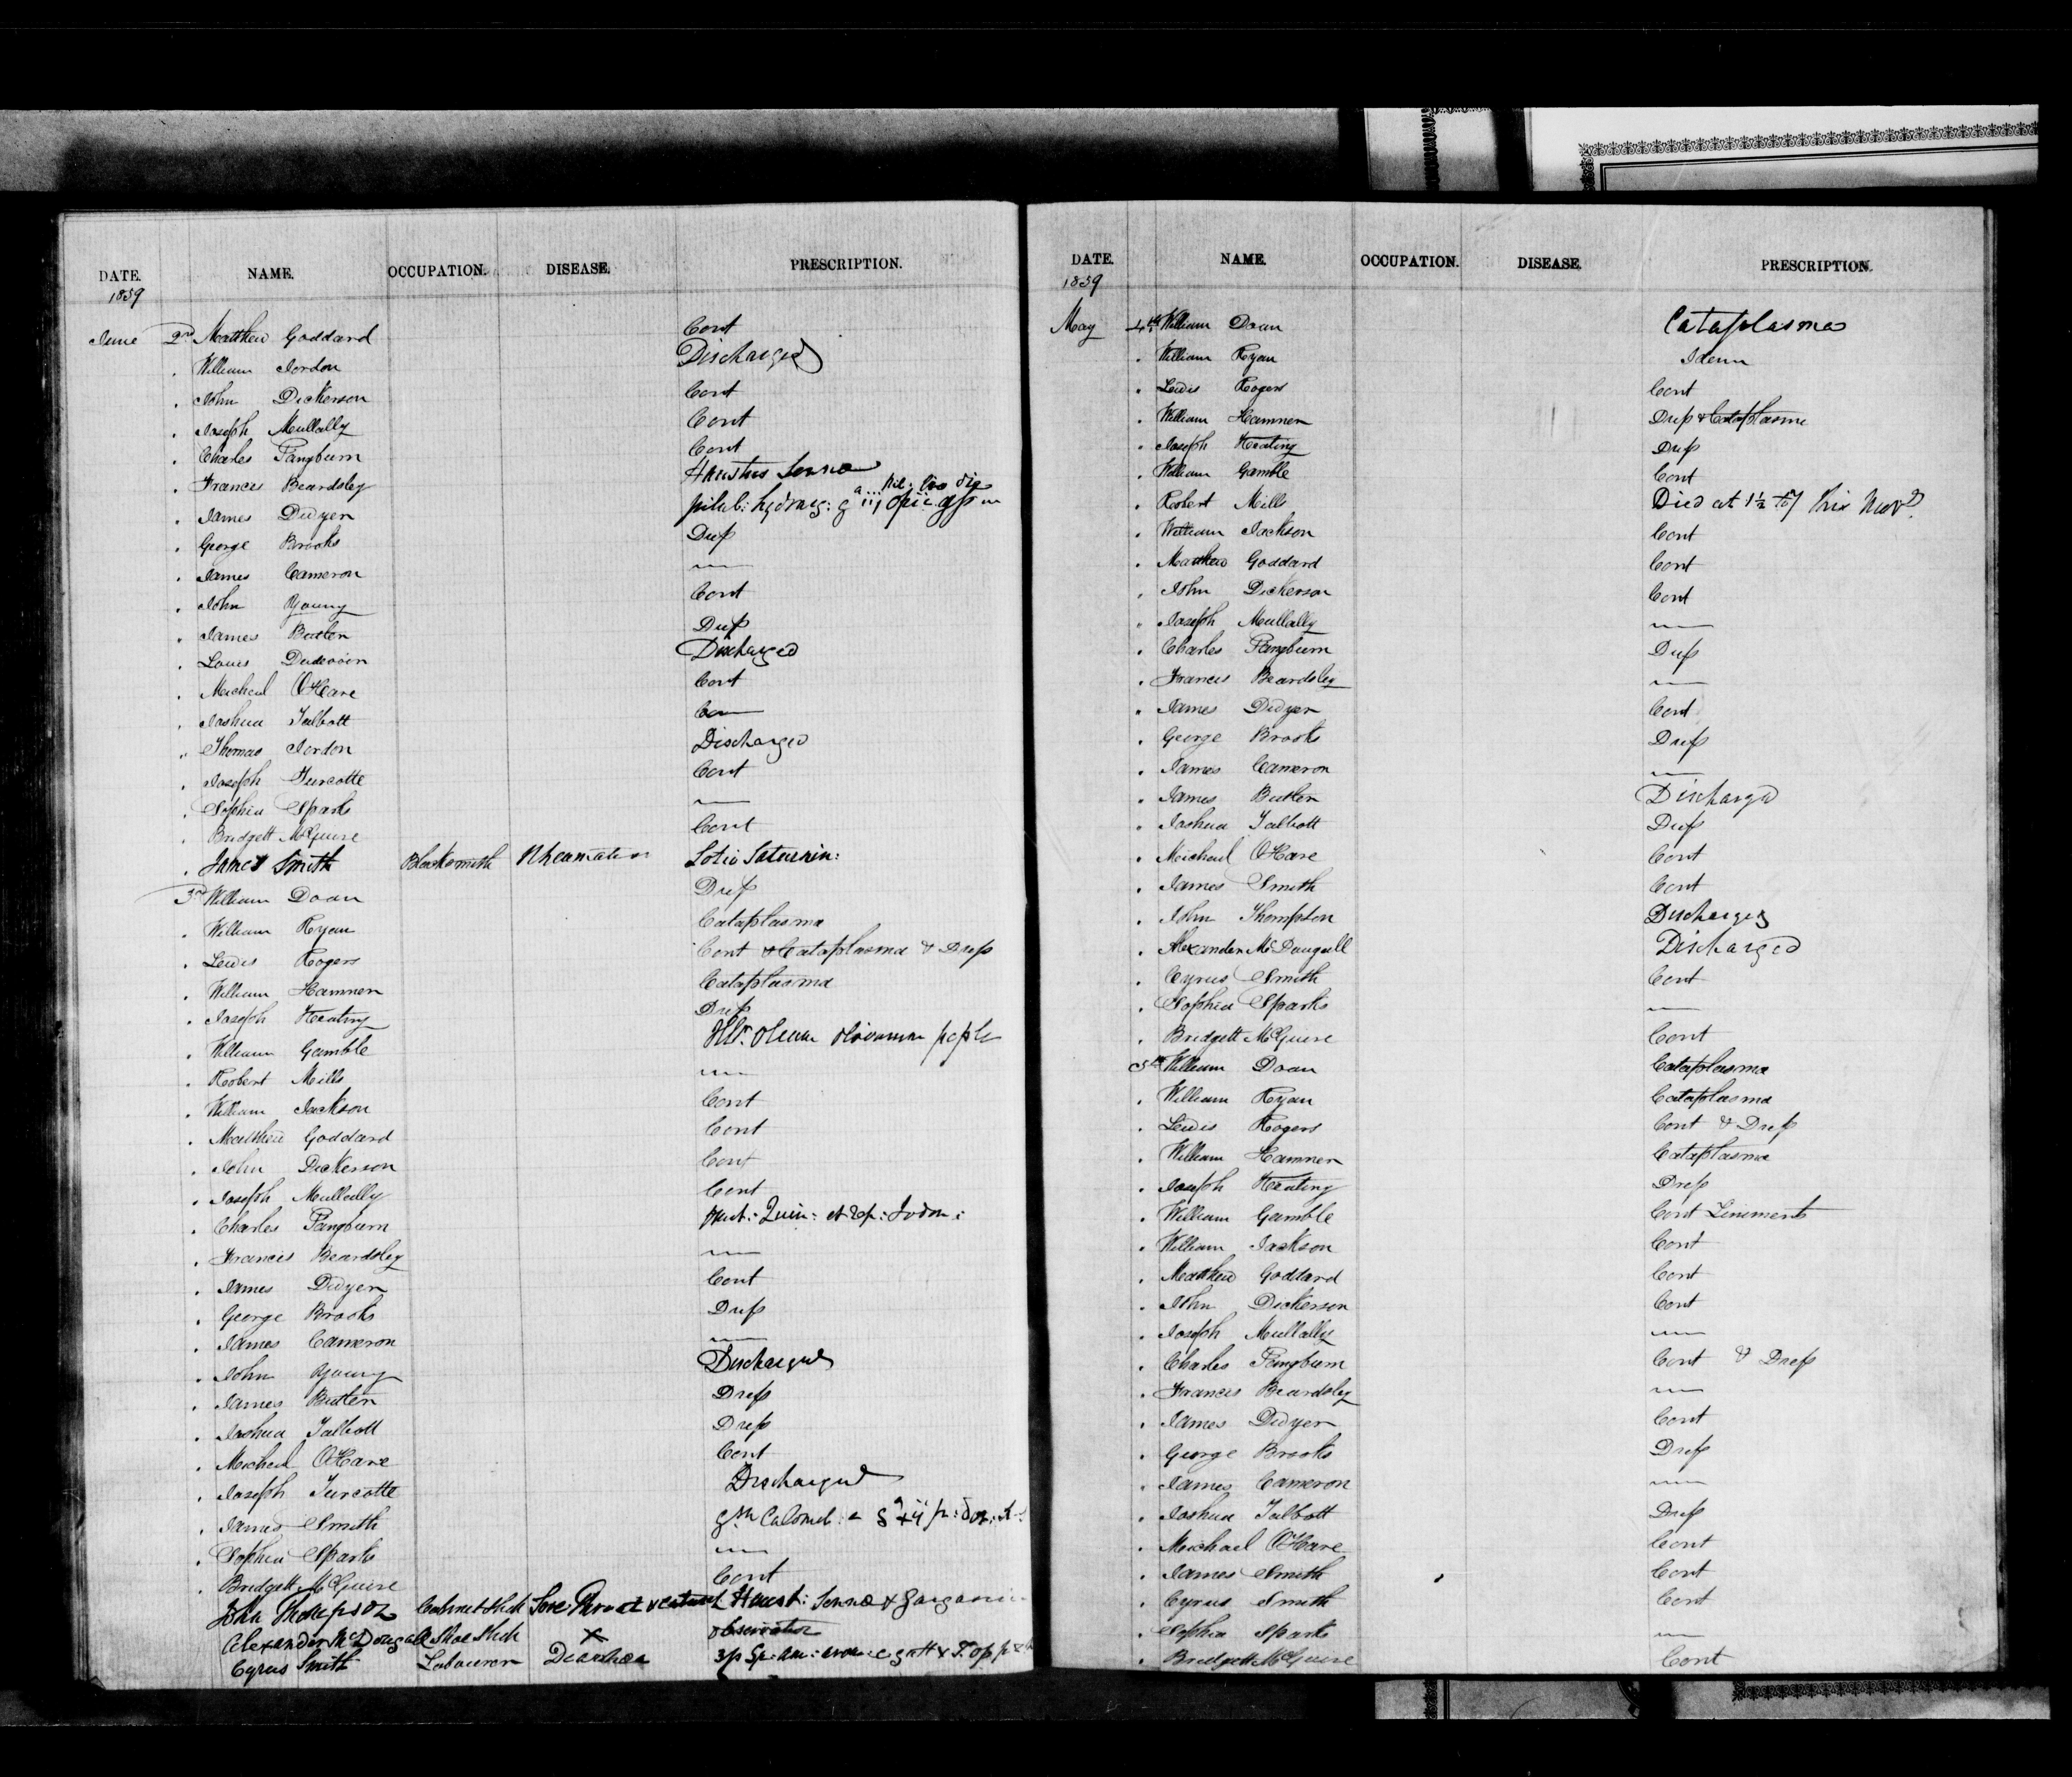 DATE. NAME. OCCUPATION. DISEASE. PRESCRIPTION.
1859
June 2nd Matthew Goddard Cont
. William Jordon Discharged
. John Dickerson Cont
. Joseph Mullally Cont
. Charles Pangburn Cont
. Francis Beardsley Haustus Senna
. James Dwyer pilul: hydrarg: g iij opii
. George Brooks Dress
. James Cameron —
. John Young Cont
. James Butler Dress
. Louis Discharged
. Micheal O'Hare Cont
. Joshua Talbott
„ Thomas Jordon Discharged
. Joseph Turcotte Cont
. Sophia Sparks —
. Bridgett McGuire Cont
. James Smith Blacksmith Rheumatism Lotio Saturnin:
3rd William Doan Dress
. William Ryan Cataplasma
. Lewis Rogers Cont & Cataplasma & Dress
. William Hamner Cataplasma
. Joseph Keating Dress
. William Gamble
. Robert Mills —
. William Jackson Cont
. Matthew Goddard Cont
. John Dickerson Cont
. Joseph Mullally Cont
. Charles Pangburn Quin: et
. Francis Beardsley —
. James Dwyer Cont
. George Brooks Dress
. James Cameron —
. John Young Discharged
. James Butler Dress
. Joshua Talbott Dress
. Micheal O'Hare Cont
. Joseph Turcotte Discharged
. James Smith Calomel:
. Sophia Sparks —
. Bridgett McGuire Cont
John Thompson Cabinet Sore Throat Haust: Senna &
Alexander McDougall Shoe X observation
Cyrus Smith Labourer Diarrhoea
DATE. NAME. OCCUPATION. DISEASE. PRESCRIPTION.
1859
May 4th William Doan Cataplasma
. William Ryan Idem
. Lewis Rogers Cont
. William Hamner Dress & Cataplasma
. Joseph Keating Dress
. William Gamble Cont
. Robert Mills Died at 1½ this
. William Jackson Cont
. Matthew Goddard Cont
. John Dickerson Cont
„ Joseph Mullally —
. Charles Pangburn Dress
. Francis Beardsley —
. James Dwyer Cont
. George Brooks Dress
. James Cameron —
. James Butler Discharged
. Joshua Talbott Dress
. Micheal O'Hare Cont
. James Smith Cont
. John Thompson Discharged
. Alexander McDougall Discharged
. Cyrus Smith Cont
. Sophia Sparks —
. Bridgett McGuire Cont
5th William Doan Cataplasma
. William Ryan Cataplasma
. Lewis Rogers Cont & Dress
. William Hamner Cataplasma
. Joseph Keating Dress
. William Gamble Cont Liniments
. William Jackson Cont
. Matthew Goddard Cont
. John Dickerson Cont
. Joseph Mullally —
. Charles Pangburn Cont & Dress
. Francis Beardsley —
. James Dwyer Cont
. George Brooks Dress
. James Cameron —
. Joshua Talbott Dress
. Michael O'Hare Cont
. James Smith Cont
. Cyrus Smith Cont
. Sophia Sparks —
. Bridgett McGuire Cont